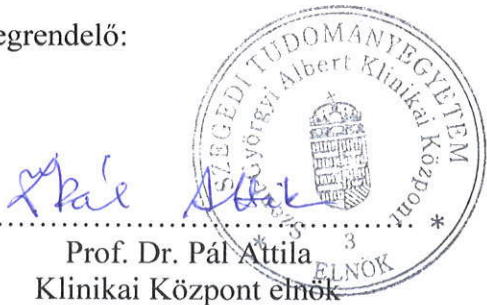 egrendelő:
SZEGEDI TUDOMÁNYEGYETEM
Szent-Györgyi Albert Klinikai Központ
* 3 *
ELNÖK
Pál Attila
Prof. Dr. Pál Attila
Klinikai Központ elnök